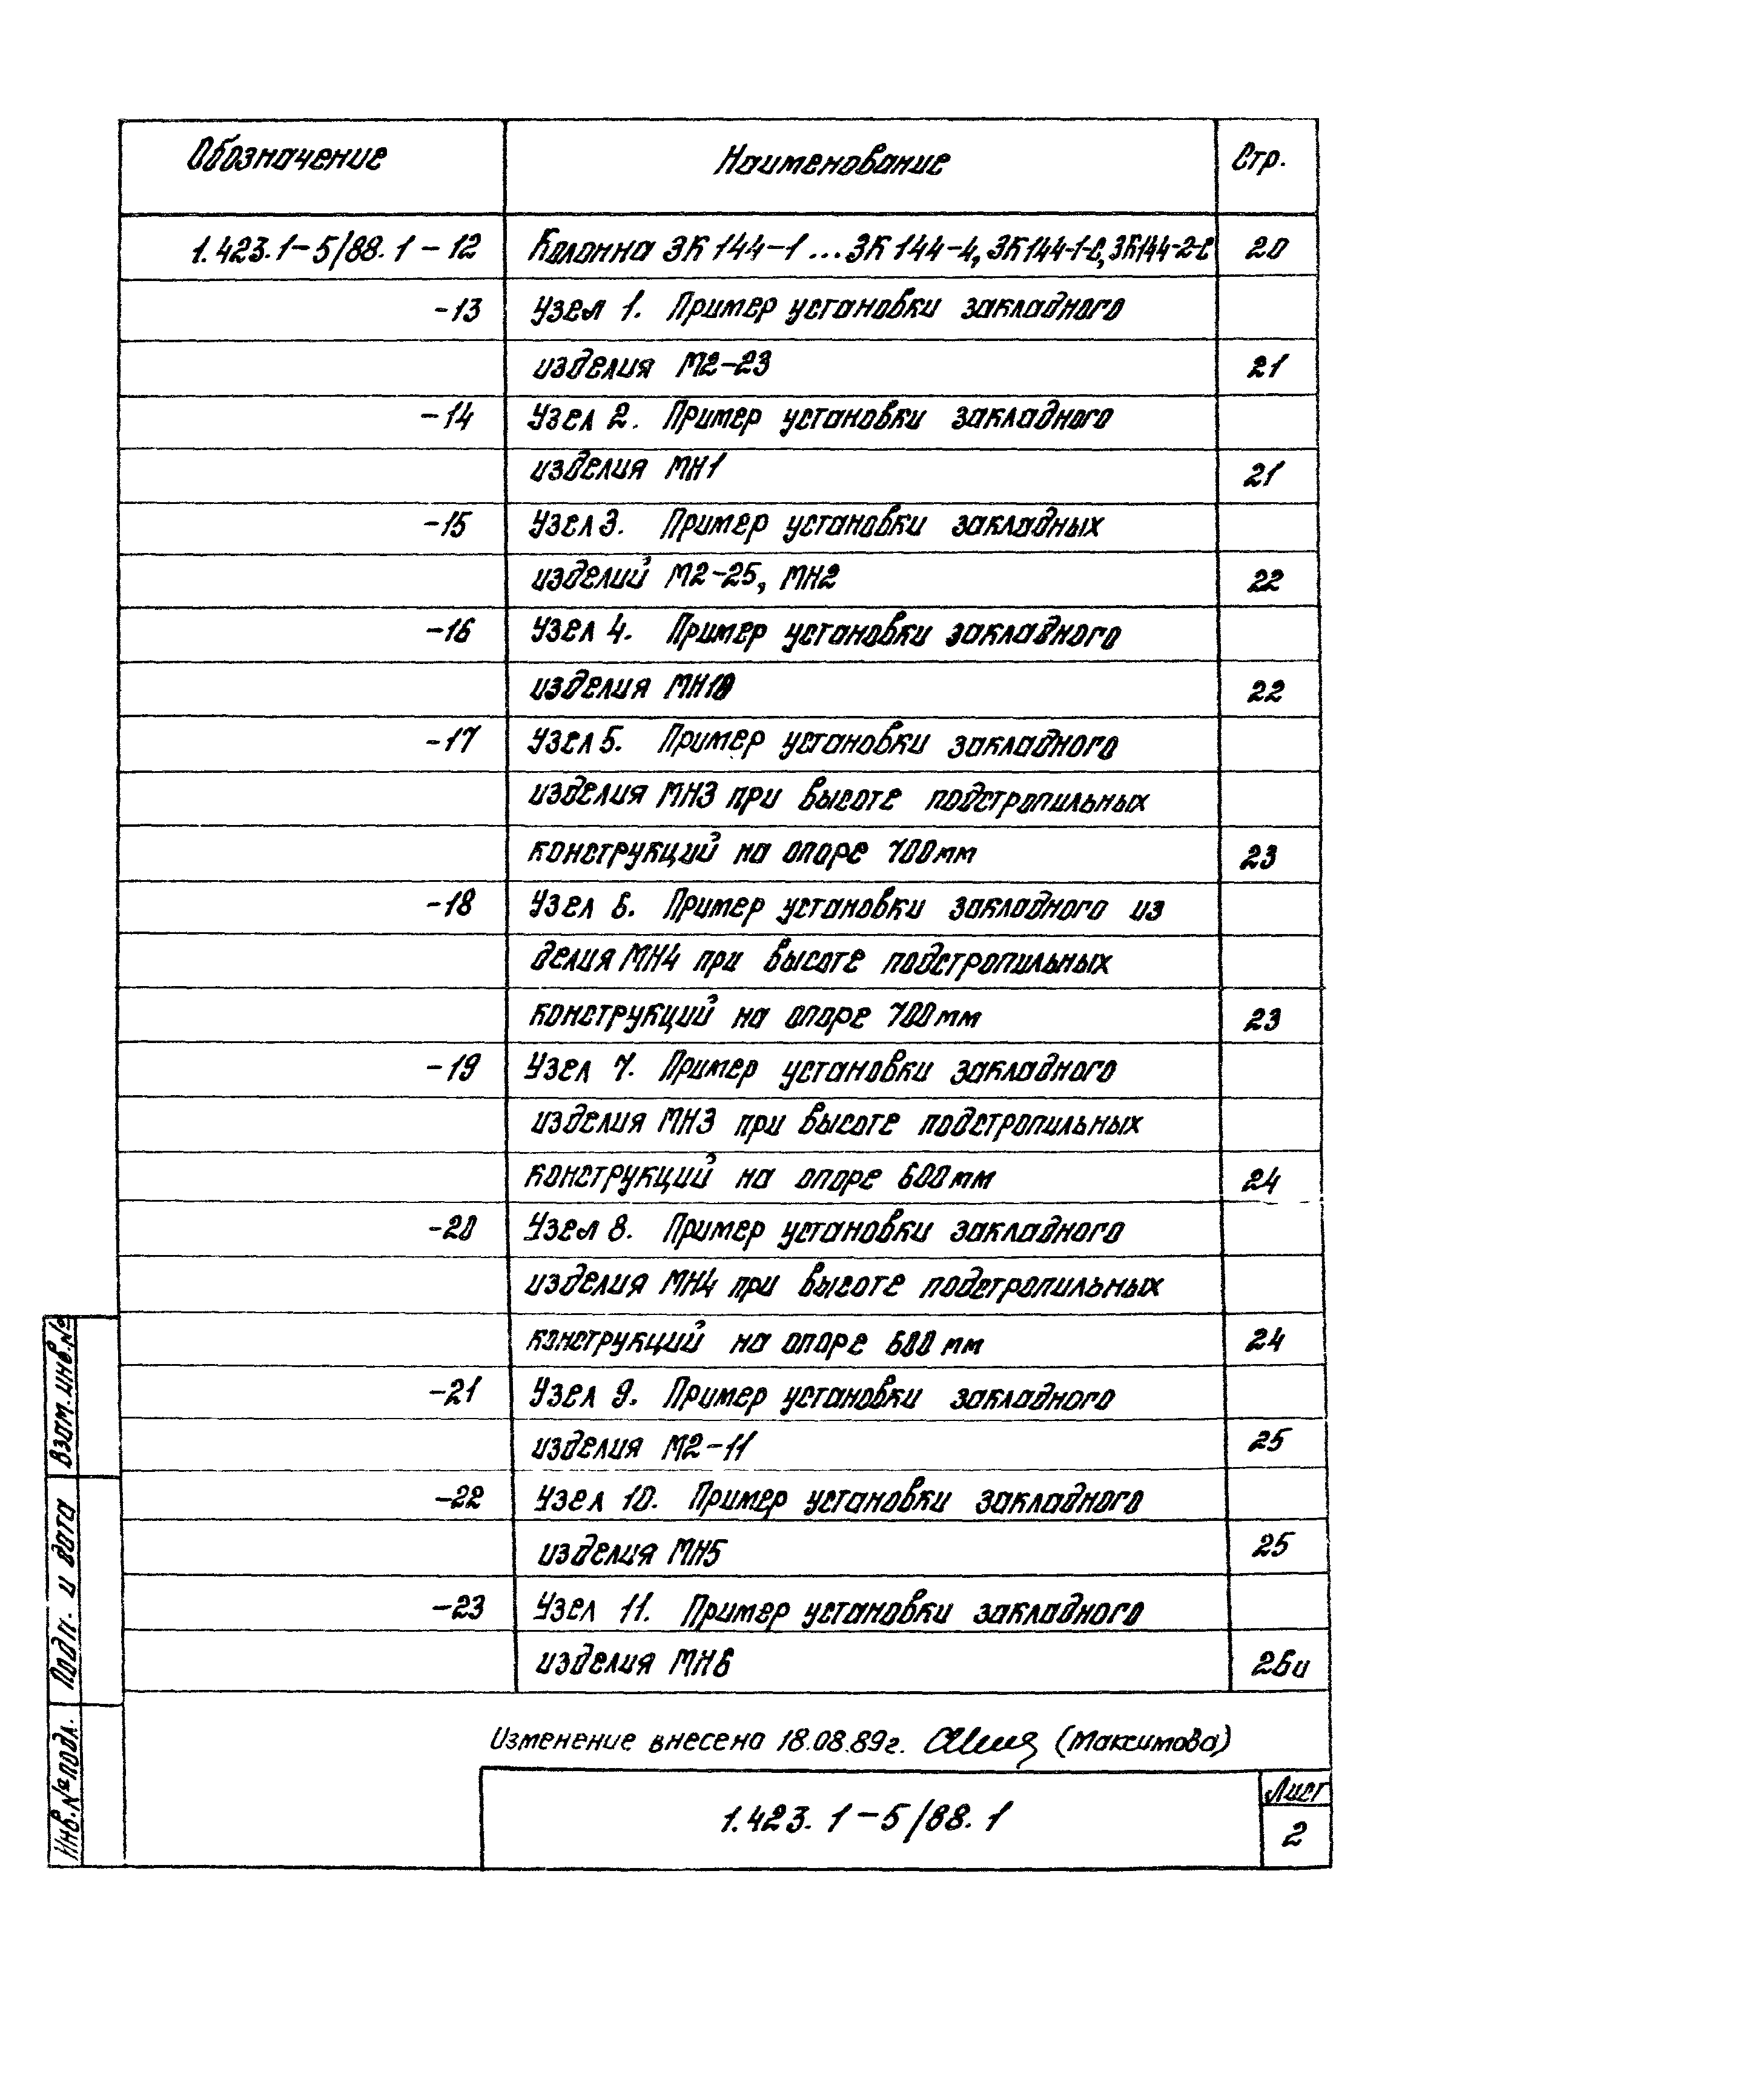 Обозначение Наименование Стр.
1.423.1-5/88.1-12 Колонна 3К144-1...3К144-4, 3К144-1-С, 3К144-2-С 20
-13 Узел 1. Пример установки закладного
изделия М2-23 21
-14 Узел 2. Пример установки закладного
изделия МН1 21
-15 Узел 3. Пример установки закладных
изделий М2-25, МН2 22
-16 Узел 4. Пример установки закладного
изделия 22
-17 Узел 5. Пример установки закладного
изделия МН3 при высоте подстропильных
конструкций на опоре 700мм 23
-18 Узел 6. Пример установки закладного из
делия МН4 при высоте подстропильных
конструкций на опоре 700мм 23
-19 Узел 7. Пример установки закладного
изделия МН3 при высоте подстропильных
конструкций на опоре 600мм 24
-20 Узел 8. Пример установки закладного
изделия МН4 при высоте подстропильных
конструкций на опоре 600 мм 24
-21 Узел 9. Пример установки закладного
изделия М2-11 25
-22 Узел 10. Пример установки закладного
изделия МН5 25
-23 Узел 11. Пример установки закладного
изделия МН6 26и
Изменение внесено 18.08.89г. (Максимова)
1.423.1-5/88.1
Лист
2
Взам. инв. №
Подп. и дата
Инв. № подл.